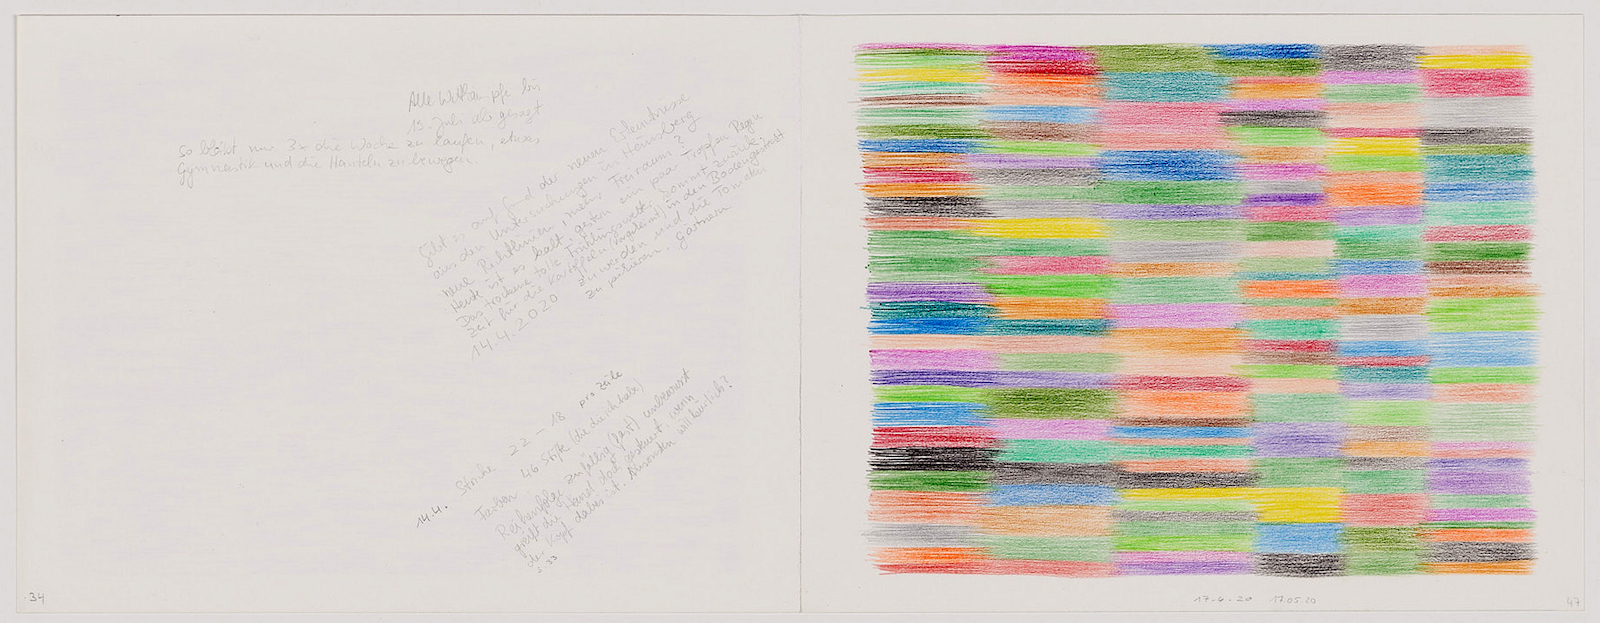 Alle Wettkämpfe bis
15. Juli abgesagt
so bleibt nur 3x die Woche zu laufen, etwas
Gymnastik und die Hanteln zu bewegen.
Gibt es auf Grund der neuen
aus den Unterzeichnungen in
neue Richtlinien, mehr Freiraum?
Heute ist es kalt, gestern ein paar Tropfen Regen
Das trockene tolle Frühlingswetter kommt zurück.
Zeit für die Kartoffeln in den Boden
14.4.2020 zu werden und die Tomaten
zu pikieren. Gärtnern
14.4. Striche 22 – 18 pro Zeile
Farben 46 Stifte
Reihenfolge zufällig (fast) unbewusst
greift die Hand dort wenn
der Kopf dabei ist. Ansonsten willkürlich?
S. 33
34
17.6.20 17.05.20
47